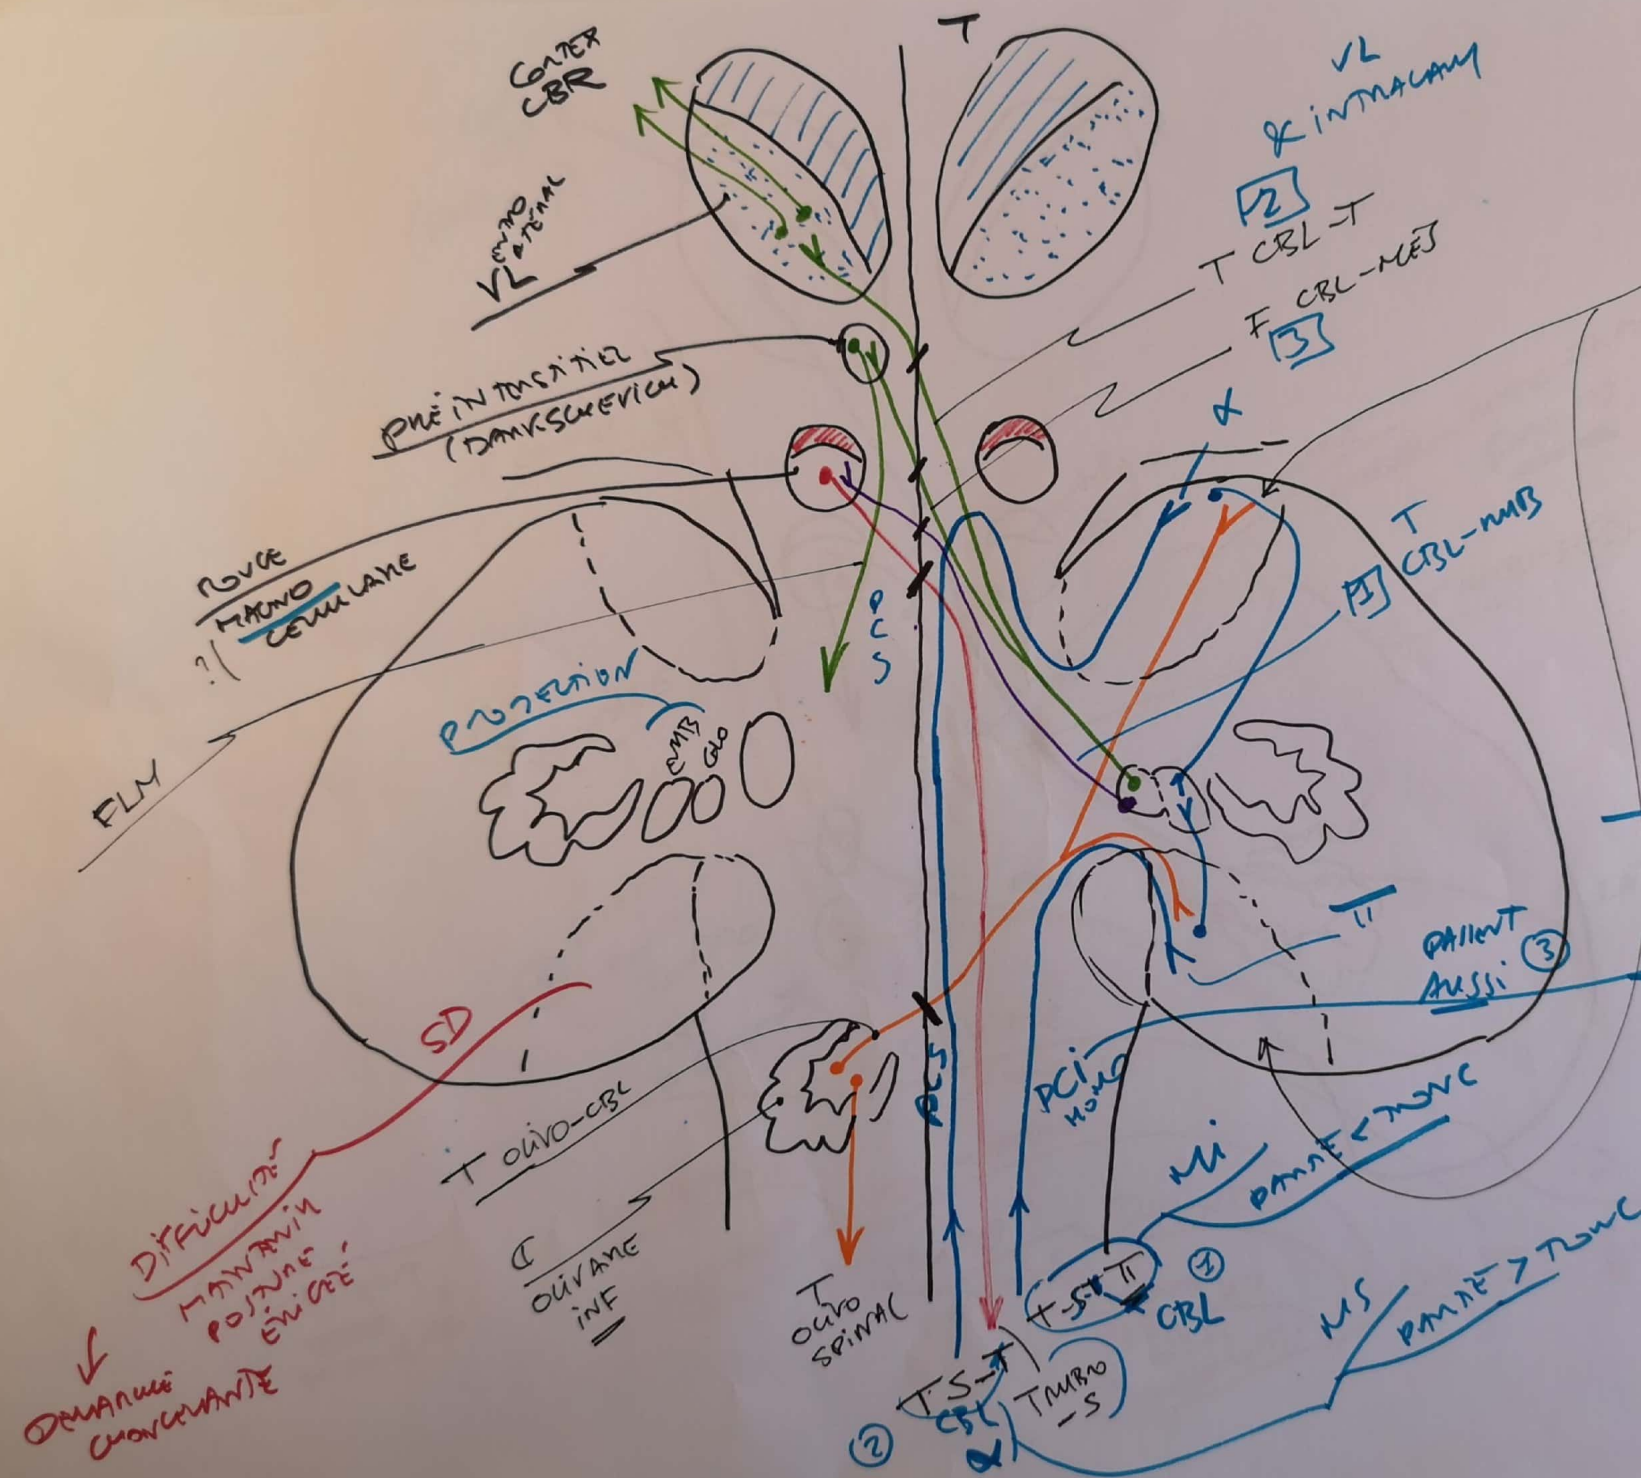 T
CORTEX
CBR
VENTRO
LATÉRAL
VL
VL
& INTRALAM
2
T CBL-T
F CBL-MES
3
PRÉINTERSTITIEL
(DARKSCHEVICH)
α
T
CBL-RUB
1
ROUGE
MAGNO
CELLULAIRE
?!
PCS
PROJECTION
EMB
GLO
FLM
II
PASSENT
AUSSI
3
SD
PCS
PCI
HOMO
T OLIVO-CBL
MI
PARTIE < TRONC
DIFFICULTÉ
MAINTENIR
POSTURE
ÉRIGÉE
DEMARCHE
CHANCELANTE
C
OLIVAIRE
INF
T
OLIVO
SPINAL
T-S-T II
CBL
1
MS
PARTIE > TRONC
T-S-T
CBL
α
2
T RUBRO
-S